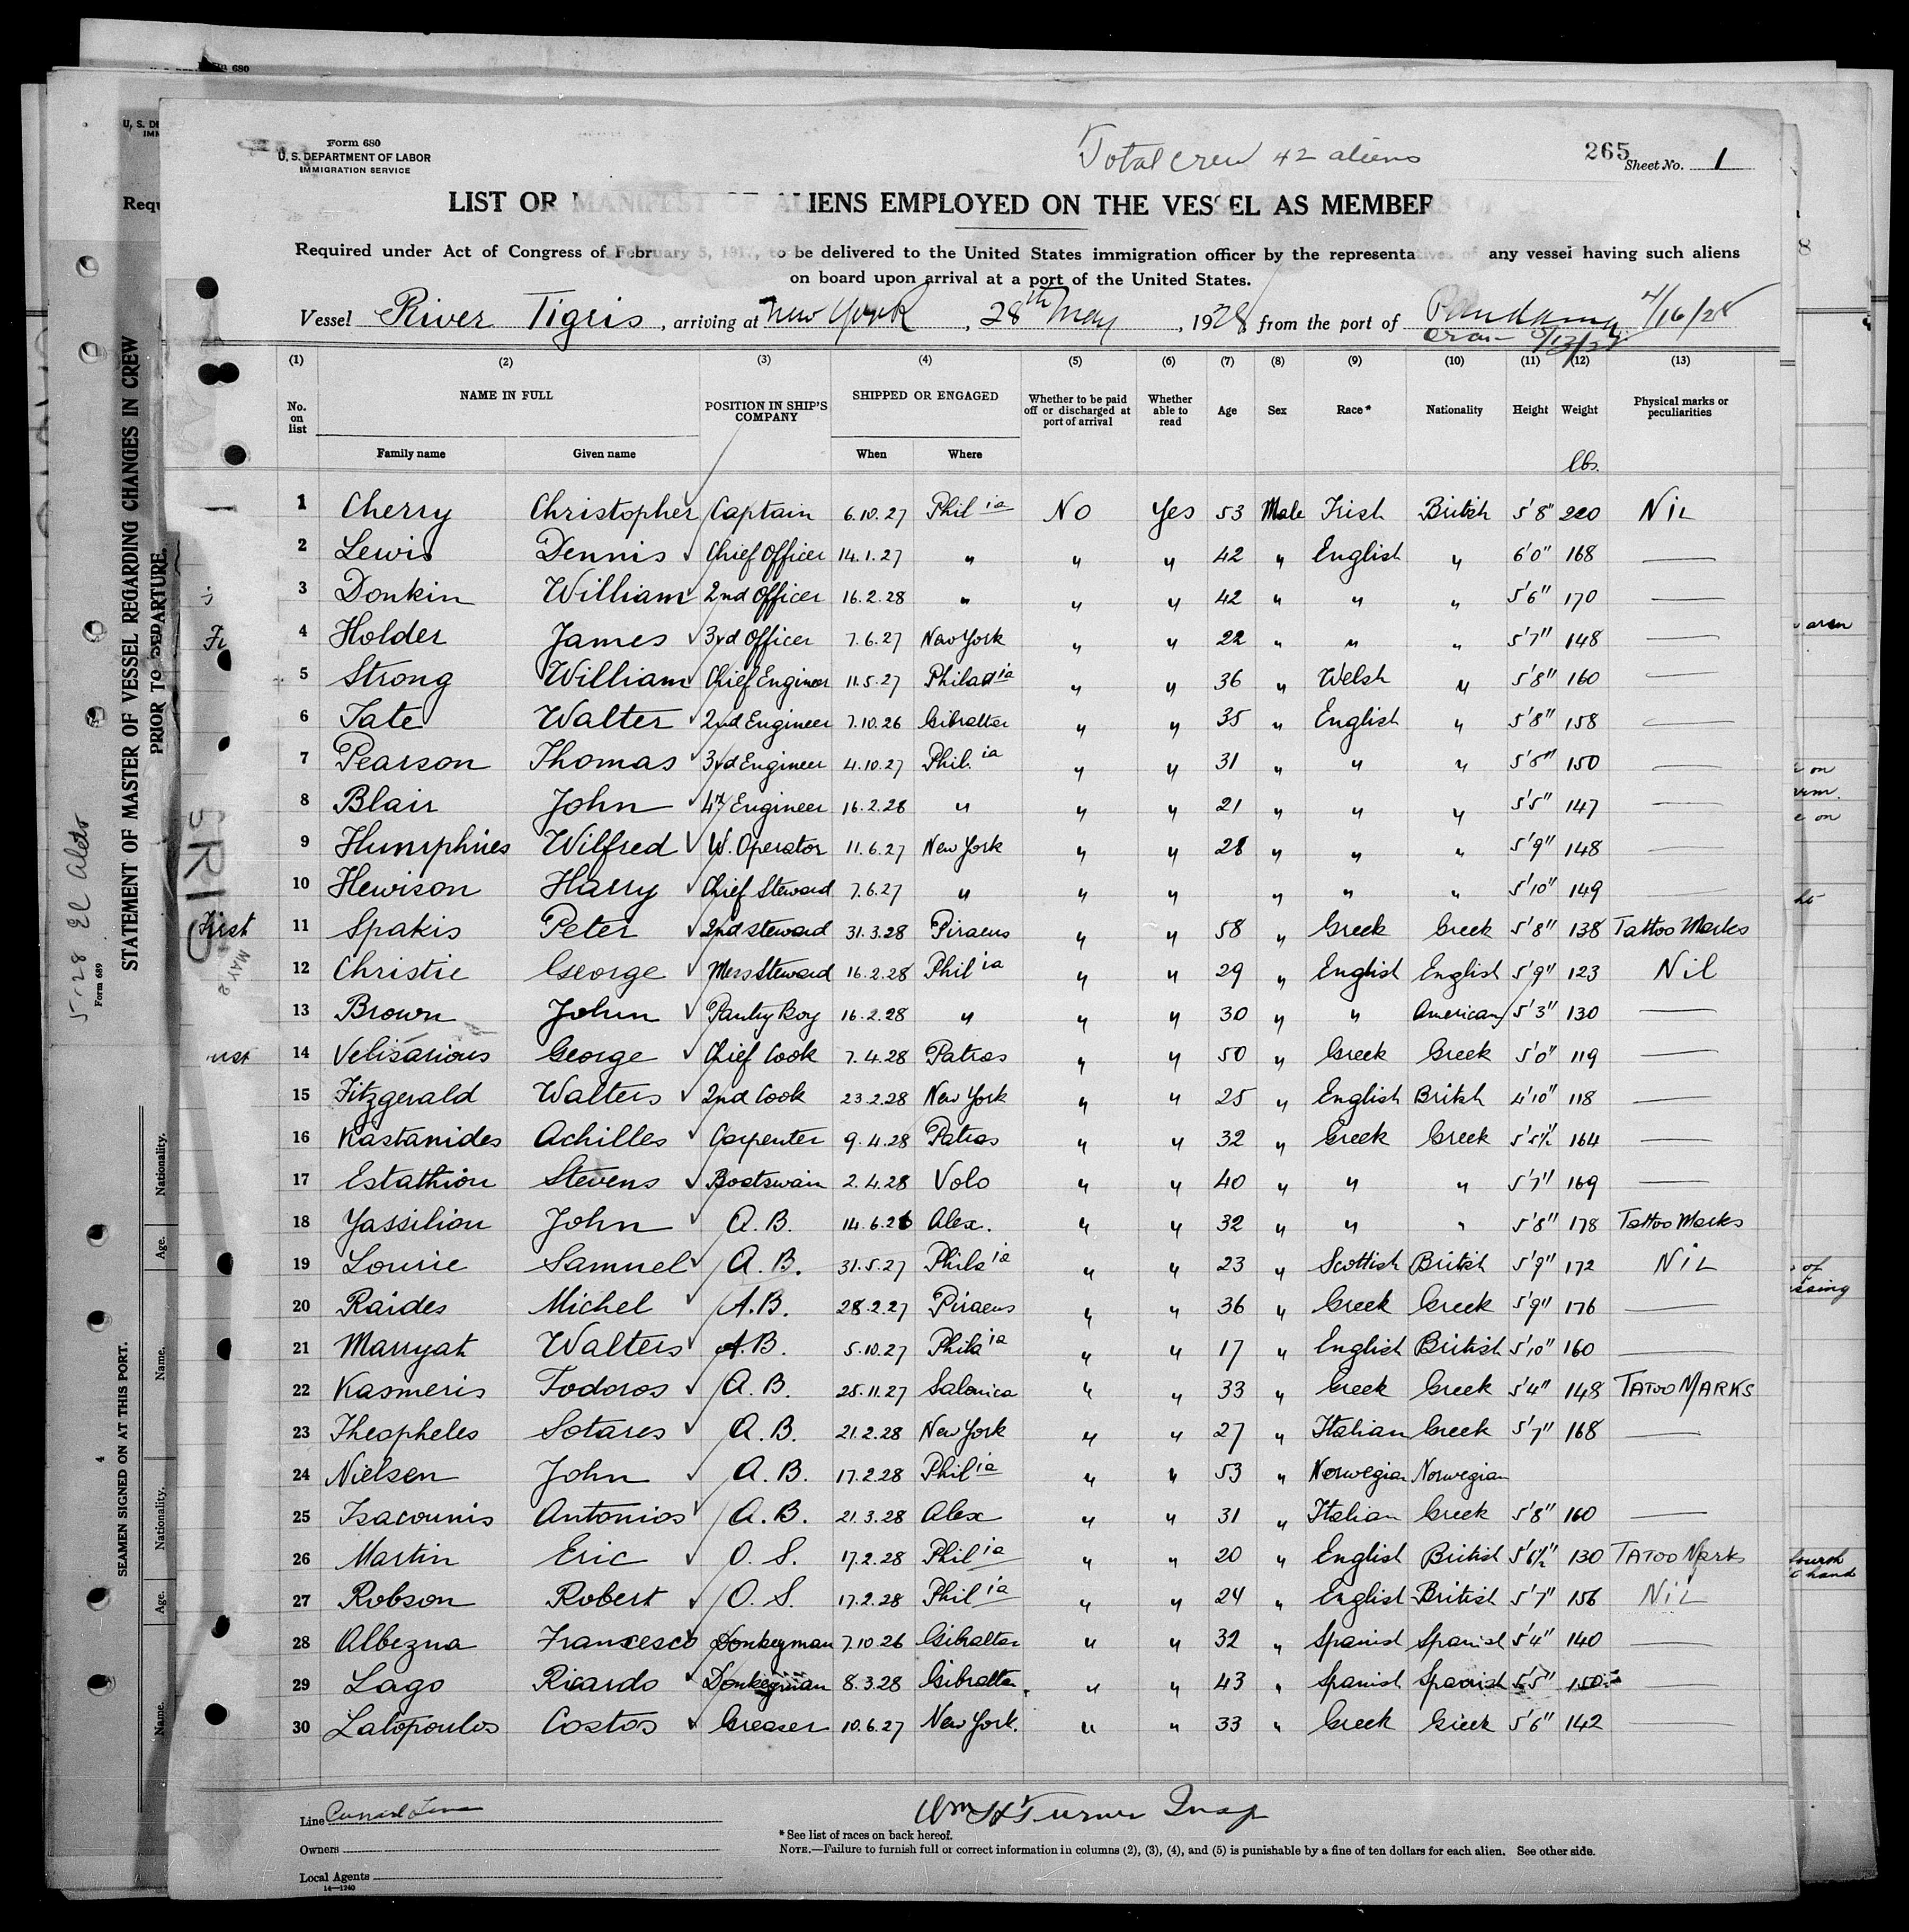 Form 680
U. S. DEPARTMENT OF LABOR
IMMIGRATION SERVICE
Total crew 42 aliens
265
Sheet No. 1
LIST OR MANIFEST OF ALIENS EMPLOYED ON THE VESSEL AS MEMBERS OF
Required under Act of Congress of February 5, 1917, to be delivered to the United States immigration officer by the representatives of any vessel having such aliens
on board upon arrival at a port of the United States.
Vessel River Tigris, arriving at New York, 28th May, 1928 from the port of 4/16/28
Oran 5/13/28
(1) (2) (3) (4) (5) (6) (7) (8) (9) (10) (11) (12) (13)
No. on list NAME IN FULL POSITION IN SHIP'S COMPANY SHIPPED OR ENGAGED Whether to be paid off or discharged at port of arrival Whether able to read Age Sex Race* Nationality Height Weight Physical marks or peculiarities
Family name Given name When Where
lbs.
1 Cherry Christopher Captain 6.10.27 Phil ia No Yes 53 Male Irish British 5'8" 200 Nil
2 Lewis Dennis Chief Officer 14.1.27 " " " 42 " English " 6'0" 168 —
3 Donkin William 2nd Officer 16.2.28 " " " 42 " " " 5'6" 170 —
4 Holder James 3rd Officer 7.6.27 New York " " 22 " " " 5'7" 148 —
5 Strong William Chief Engineer 11.5.27 Philad ia " " 36 " Welsh " 5'8" 160 —
6 Tate Walter 2nd Engineer 7.10.26 Gibralter " " 35 " English " 5'8" 158 —
7 Pearson Thomas 3rd Engineer 4.10.27 Phil. ia " " 31 " " " 5'8" 150 —
8 Blair John 4th Engineer 16.2.28 " " " 21 " " " 5'5" 147 —
9 Humphries Wilfred W. Operator 11.6.27 New York " " 28 " " " 5'9" 148 —
10 Hewison Harry Chief Steward 7.6.27 " " " " " " 5'10" 149 —
11 Spakis Peter 2nd steward 31.3.28 Piraeus " " 58 " Greek Greek 5'8" 138 Tattoo Marks
12 Christie George Mess Steward 16.2.28 Phil ia " " 29 " English English 5'9" 123 Nil
13 Brown John Pantry Boy 16.2.28 " " " 30 " " American 5'3" 130 —
14 Velisarious George Chief Cook 7.4.28 Patras " " 50 " Greek Greek 5'0" 119 —
15 Fitzgerald Walters 2nd Cook 23.2.28 New York " " 25 " English British 4'10" 118 —
16 Kastanides Achilles Carpenter 9.4.28 Patras " " 32 " Greek Greek 5'5½ 164 —
17 Estathiou Stevens Boatswain 2.4.28 Volo " " 40 " " " 5'7" 169 —
18 Yassiliou John A.B. 14.6.26 Alex. " " 32 " " " 5'8" 178 Tattoo Marks
19 Lourie Samuel A.B. 31.5.27 Phila ia " " 23 " Scottish British 5'9" 172 Nil
20 Raides Michel A.B. 28.2.27 Piraeus " " 36 " Greek Greek 5'9" 176 —
21 Marryat Walters A.B. 5.10.27 Phila ia " " 17 " English British 5'10" 160 —
22 Kasmeris Todoros A.B. 25.11.27 Salonica " " 33 " Greek Greek 5'4" 148 TATOO MARKS
23 Theopheles Sotares A.B. 21.2.28 New York " " 27 " Italian Greek 5'7" 168 —
24 Nielsen John A.B. 17.2.28 Phil ia " " 53 " Norwegian Norwegian
25 Isacounis Antonios A.B. 21.3.28 Alex " " 31 " Italian Greek 5'8" 160 —
26 Martin Eric O.S. 17.2.28 Phil ia " " 20 " English British 5'6½" 130 TATOO Marks
27 Robson Robert O.S. 17.2.28 Phil ia " " 24 " English British 5'7" 156 Nil
28 Albezna Francesco Donkeyman 7.10.26 Gibralter " " 32 " Spanish Spanish 5'4" 140 —
29 Lago Ricardo Donkeyman 8.3.28 Gibralter. " " 43 " Spanish Spanish 5'5" 150 —
30 Latopoulos Costos Greaser 10.6.27 New York. " " 33 " Greek Greek 5'6" 142 —
Line Cunard Line
Wm H Turner Insp
* See list of races on back hereof.
Owners
NOTE.—Failure to furnish full or correct information in columns (2), (3), (4), and (5) is punishable by a fine of ten dollars for each alien. See other side.
Local Agents
14—1240
STATEMENT OF MASTER OF VESSEL REGARDING CHANGES IN CREW
PRIOR TO DEPARTURE.
Form 689
SEAMEN SIGNED ON AT THIS PORT.
Name. Age. Nationality. Name. Age. Nationality.